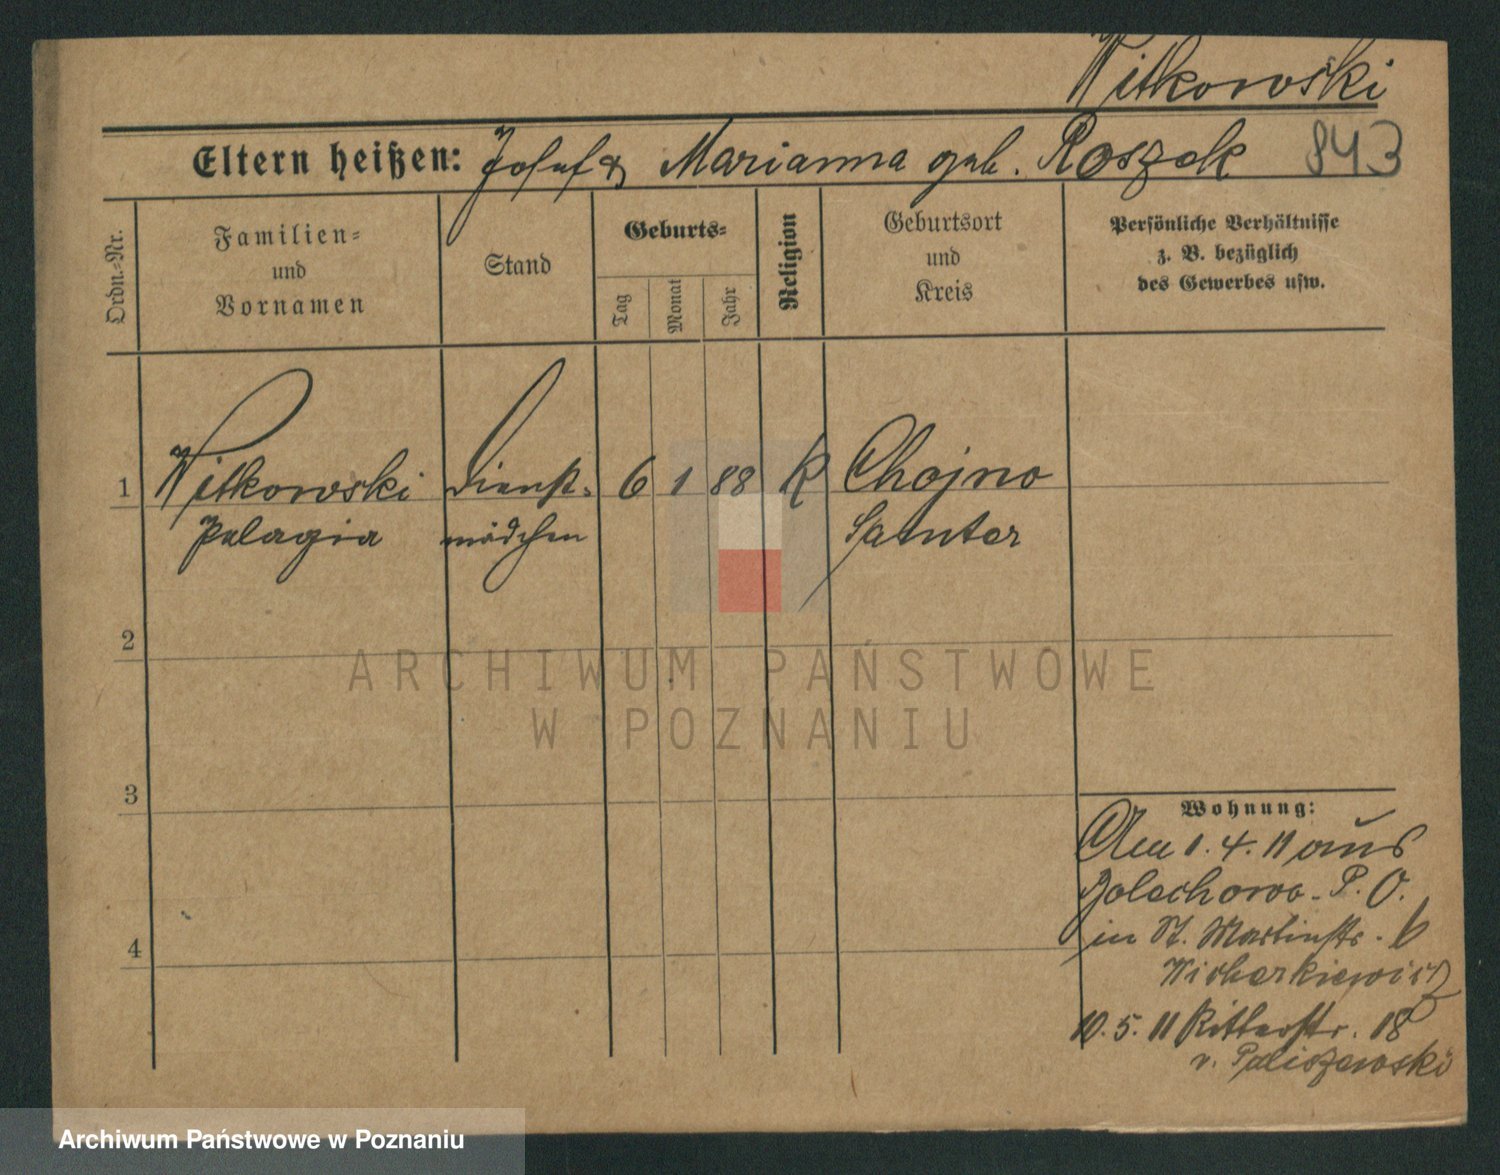 Witkowski
Eltern heißen: Josef & Marianna geb. Roszak 843
Ordn.=Nr.
Familien=
und
Vornamen
Stand
Geburts=
Tag
Monat
Jahr
Religion
Geburtsort
und
Kreis
Persönliche Verhältnisse
z. B. bezüglich
des Gewerbes usw.
1 Witkowski Dienst= 6 1 88 K Chojno
Pelagia mädchen Samter
2
3
4
Wohnung:
Am 1. 4. 11 aus
Bolechowo - P. O.
in St. Martinstr. 6
Wicherkiewicz
10. 5. 11 Ritterstr. 18
v. Paliszewski
ARCHIWUM PAŃSTWOWE
W POZNANIU
Archiwum Państwowe w Poznaniu